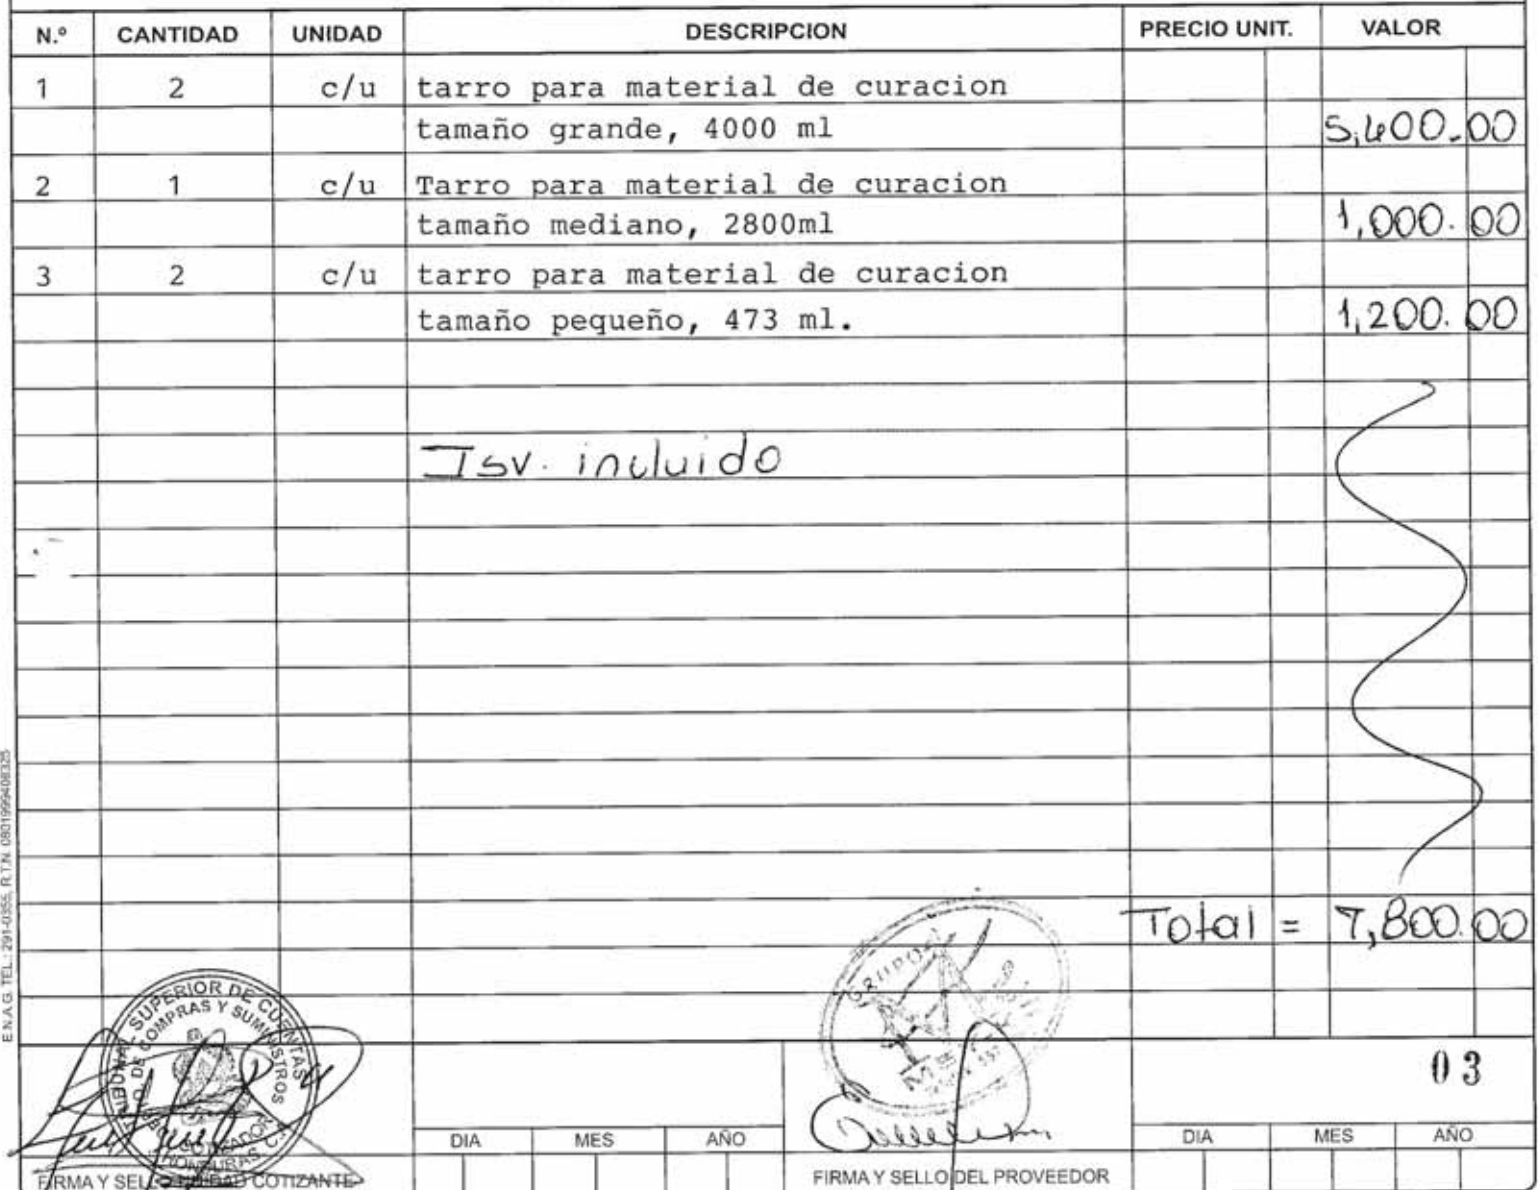 N.º CANTIDAD UNIDAD DESCRIPCION PRECIO UNIT. VALOR
1 2 c/u tarro para material de curacion
tamaño grande, 4000 ml 5,600.00
2 1 c/u Tarro para material de curacion
tamaño mediano, 2800ml 1,000.00
3 2 c/u tarro para material de curacion
tamaño pequeño, 473 ml. 1,200.00
Isv. incluido
Total = 7,800.00
E.N.A.G. TEL.: 291-0355, R.T.N. 08019999408325
TRIBUNAL SUPERIOR DE CUENTAS
DE COMPRAS Y SUMINISTROS
COTIZADOR
HONDURAS C.
GRUPO
03
DIA MES AÑO
DIA MES AÑO
FIRMA Y SELLO UNIDAD COTIZANTE
FIRMA Y SELLO DEL PROVEEDOR